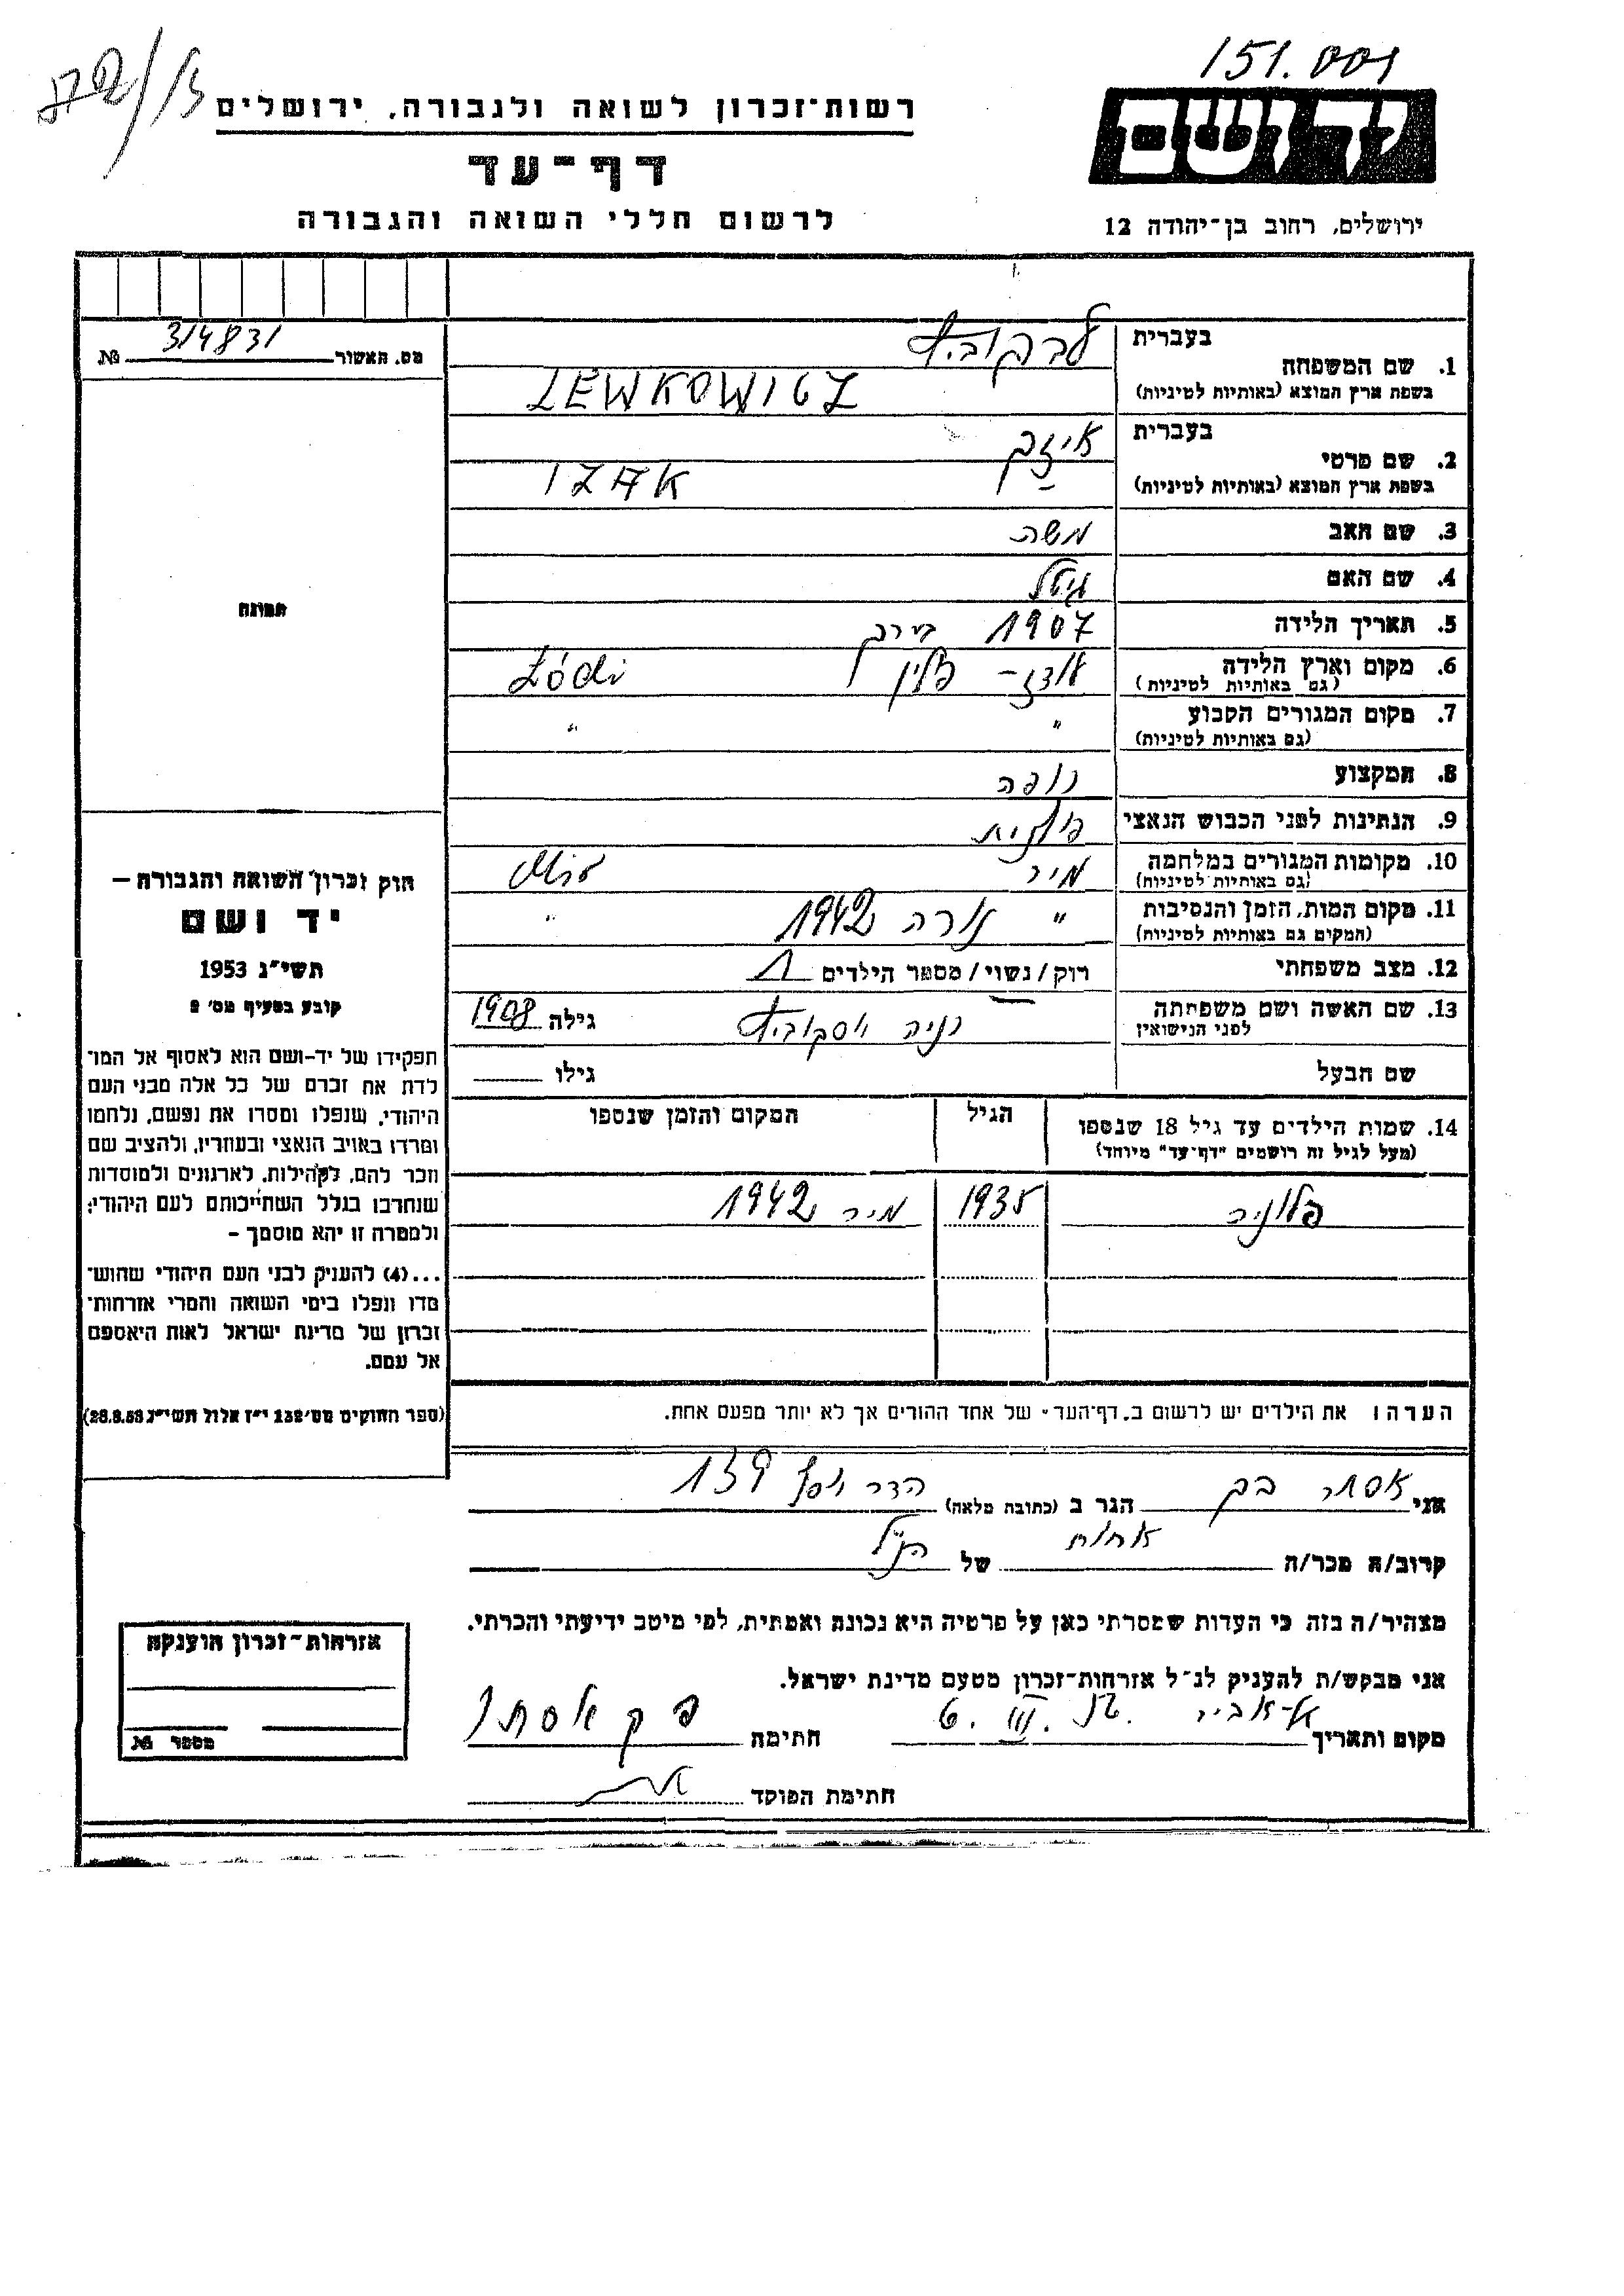 151.001
רשות־זכרון לשואה ולגבורה, ירושלים
יד ושם
דף־עד
לרשום חללי השואה והגבורה
ירושלים, רחוב בן־יהודה 12
מס. האשור № 314831
בעברית
לבקוביץ
1. שם המשפחה
בשפת ארץ המוצא (באותיות לטיניות)
LEWKOWICZ
בעברית
איזק
2. שם פרטי
בשפת ארץ המוצא (באותיות לטיניות)
IZAK
3. שם האב משה
4. שם האם גיטל
5. תאריך הלידה 1907
6. מקום וארץ הלידה לודז - פולין Łódź
(גם באותיות לטיניות)
7. מקום המגורים הקבוע " "
(גם באותיות לטיניות)
8. המקצוע רופא
9. הנתינות לפני הכבוש הנאצי פולנית
10. מקומות המגורים במלחמה מיר
(גם באותיות לטיניות)
11. מקום המות, הזמן והנסיבות " נורה 1942 "
(המקום גם באותיות לטיניות)
12. מצב משפחתי רוק/נשוי/מספר הילדים 1
13. שם האשה ושם משפחתה
לפני הנישואין
גילה 1908
שם הבעל גילו
14. שמות הילדים עד גיל 18 שנספו
(מעל לגיל זה רושמים "דף־עד" מיוחד)
הגיל
המקום והזמן שנספו
1935 מיר 1942
הערה: את הילדים יש לרשום ב„דף־העד" של אחד ההורים אך לא יותר מפעם אחת.
תמונה
חוק זכרון השואה והגבורה —
יד ושם
תשי"ג 1953
קובע בסעיף מס' 2
תפקידו של יד-ושם הוא לאסוף אל המו־
לדת את זכרם של כל אלה מבני העם
היהודי, שנפלו ומסרו את נפשם, נלחמו
ומרדו באויב הנאצי ובעוזריו, ולהציב שם
וזכר להם, לקהילות, לארגונים ולמוסדות
שנחרבו בגלל השתייכותם לעם היהודי;
ולמטרה זו יהא מוסמך –
...(4) להעניק לבני העם היהודי שהוש־
מדו ונפלו בימי השואה והמרי אזרחות־
זכרון של מדינת ישראל לאות היאספם
אל עמם.
(ספר החוקים מס' 132 י"ז אלול תשי"ג 28.8.53)
אני אסתר בק הגר ב (כתובת מלאה) הדר יוסף 139
קרוב/ה מכר/ה אחות של הנ"ל
מצהיר/ה בזה כי העדות שמסרתי כאן על פרטיה היא נכונה ואמתית, לפי מיטב ידיעתי והכרתי.
אני מבקש/ת להעניק לנ"ל אזרחות־זכרון מטעם מדינת ישראל.
מקום ותאריך חתימה בק אסתר
חתימת הפוקד
אזרחות־זכרון הוענקה
מספר №